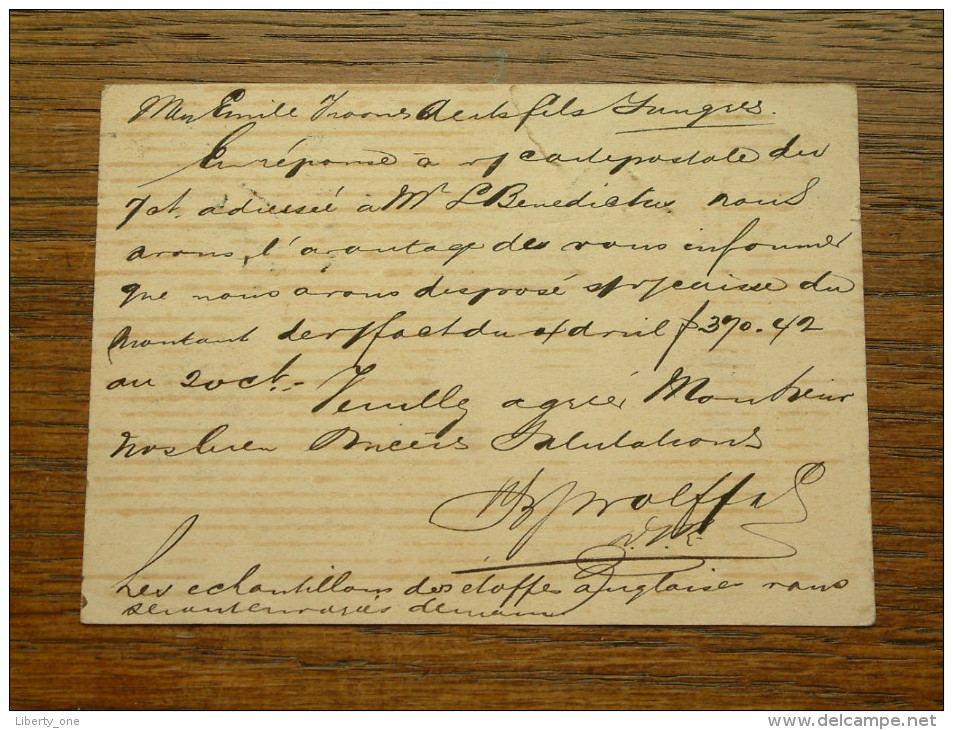 Mr Emile Deils fils Tungres.
En réponse à v/ cartepostale du
7 ct. adressée a Mr L Benedictus nous
avons l'avantage des vous informer
que nous avons desposé s/v/caisse du
montant de v/fact du 4 avril f 390.42
au 20 ct. Veuilly agréer Monsieur
nos bien sincères Salutations
Wolff
Les echantillons des étoffes Anglaise vous
seront envoyés demain
Liberty_one
delcampe.net